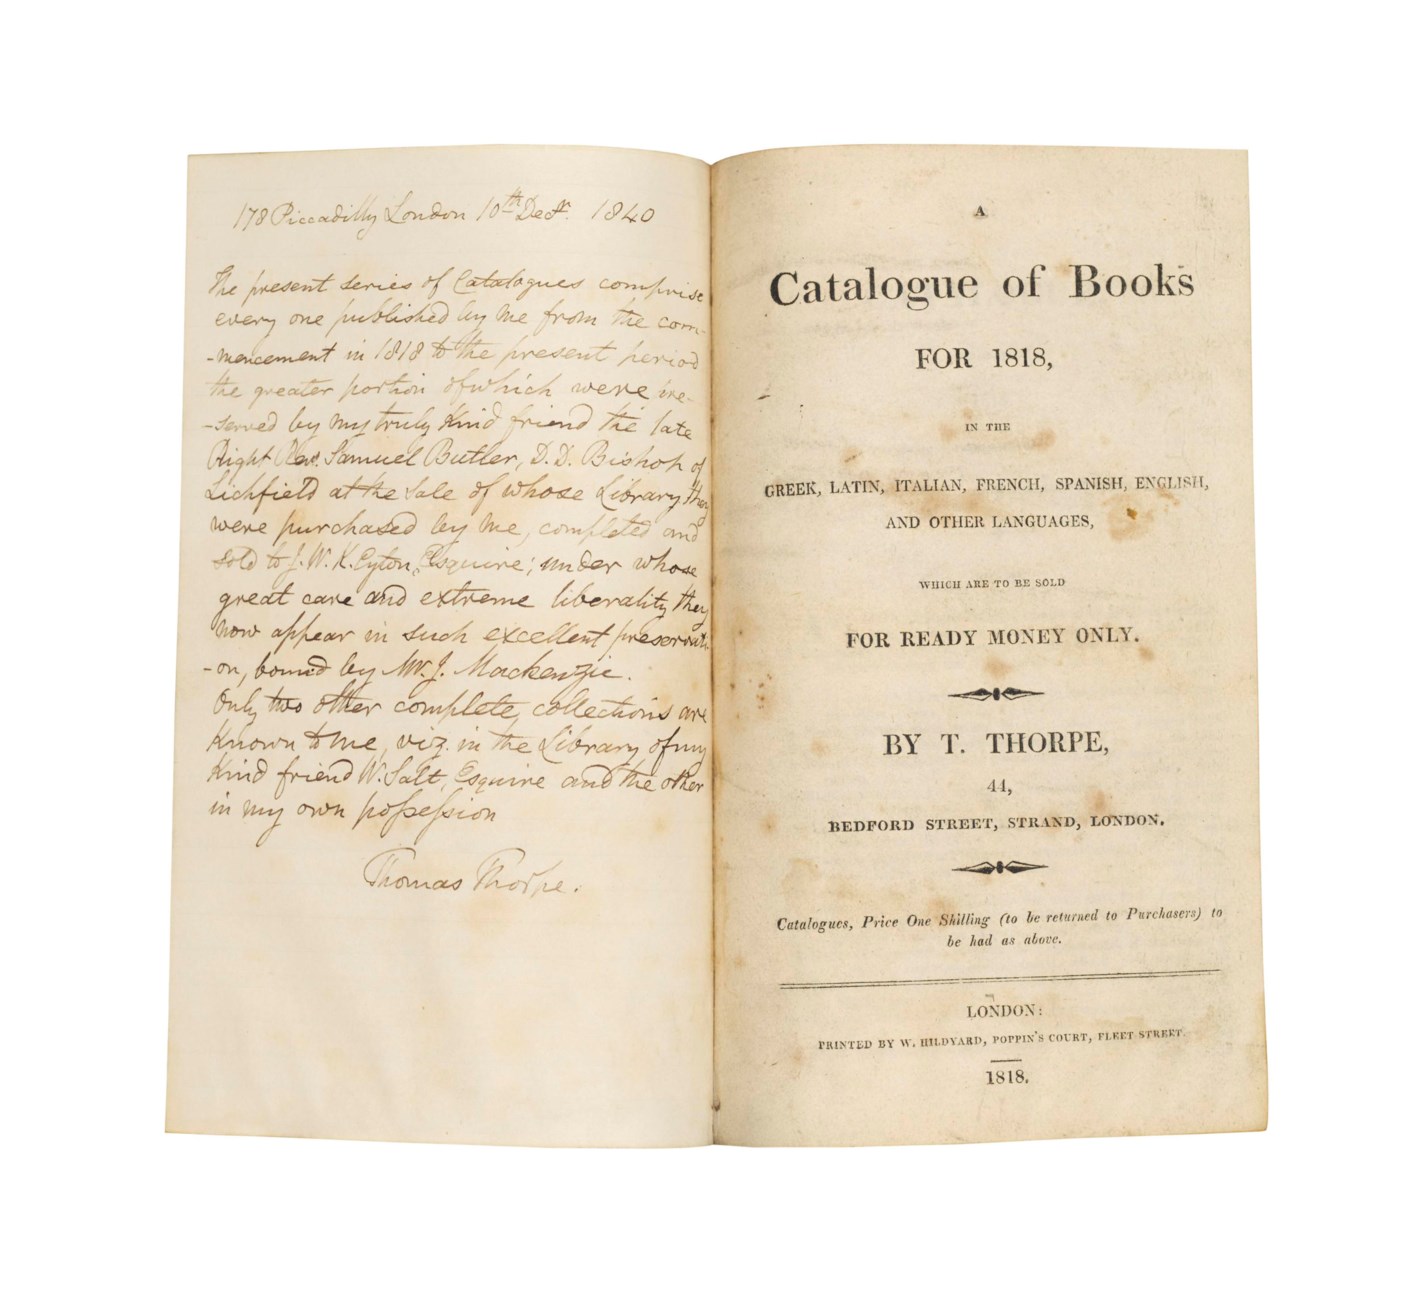 178 Piccadilly London 10th Decr. 1840
The present series of Catalogues comprise
every one published by me from the com-
-mencement in 1818 to the present period
the greater portion of which were pre-
-served by my truly Kind friend the late
Right Revd. Samuel Butler, D.D. Bishop of
Lichfield at the Sale of whose Library they
were purchased by me, completed and
sold to J. W. K. Eyton, Esquire; under whose
great care and extreme liberality they
now appear in such excellent preservati-
-on, bound by Mr. J. Mackenzie.
Only two other complete collections are
Known to me, viz. in the Library of my
Kind friend W. Salt, Esquire and the other
in my own possession
Thomas Thorpe.
A
Catalogue of Books
FOR 1818,
IN THE
GREEK, LATIN, ITALIAN, FRENCH, SPANISH, ENGLISH,
AND OTHER LANGUAGES,
WHICH ARE TO BE SOLD
FOR READY MONEY ONLY.
BY T. THORPE,
44,
BEDFORD STREET, STRAND, LONDON.
Catalogues, Price One Shilling (to be returned to Purchasers) to
be had as above.
LONDON:
PRINTED BY W. HILDYARD, POPPIN'S COURT, FLEET STREET.
1818.